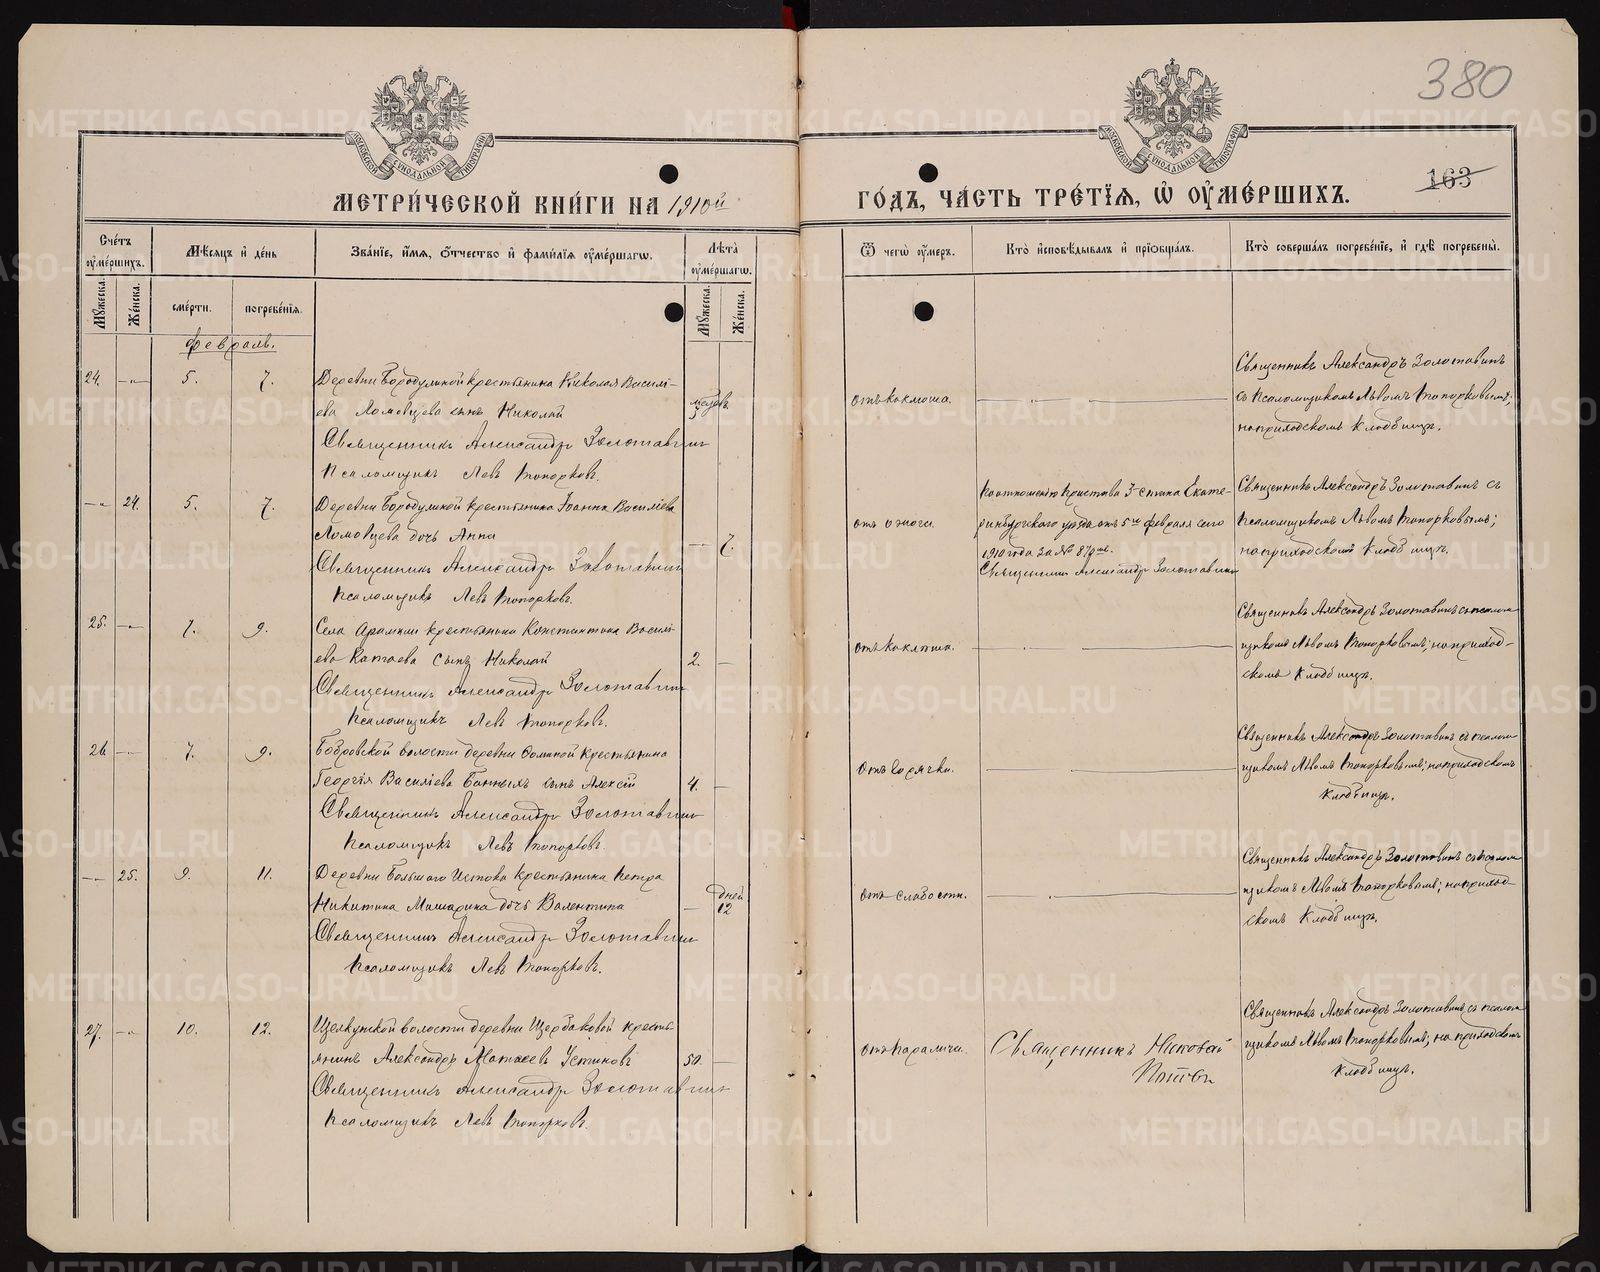 380
163
МЕТРИ́ЧЕСКОЙ КНИ́ГИ НА 1910й
ГО́ДЪ, ЧА́СТЬ ТРЕ́ТІЯ, Ѽ ОУМЕ́РШИХЪ.
Сче́тъ оуме́ршихъ.
Мѣ́сяцъ и҆ де́нь
Зва́ніе, и҆́мя, ѻ҆́тчество и҆ фами́лія оуме́ршагѡ.
Лѣ́та оуме́ршагѡ.
Ѿ чегѡ̀ оу́меръ.
Кто̀ и҆сповѣ́дывалъ и҆ пріѡбща́лъ.
Кто̀ соверша́лъ погребе́ніе, и҆ гдѣ̀ погребены̀.
Му́жеска.
Же́нска.
сме́рти.
погребе́нія.
Му́жеска.
Же́нска.
Февраль.
24. —„— 5. 7. Деревни Бородулиной крестьянина Николая Василі-
ева Ломовцева сынъ Николай
Священникъ Александръ Золотавинъ
Псаломщикъ Левъ Топорковъ.
отъ коклюша.
Священникъ Александръ Золотавинъ
съ псаломщикомъ Львомъ Топорковымъ;
на приходскомъ кладбищѣ.
—„— 24. 5. 7. Деревни Бородулиной крестьянина Іоанна Василіева
Ломовцева дочь Анна
— 7.
Священникъ Александръ Золотавинъ
Псаломщикъ Левъ Топорковъ.
отъ ожоги.
По отношенію Пристава 3 стана Екате-
ринбургскаго уѣзда отъ 5го февраля сего
1910 года за №
Священникъ Александръ Золотавинъ
Священникъ Александръ Золотавинъ съ
псаломщикомъ Львомъ Топорковымъ;
на приходскомъ кладбищѣ.
25. —„— 7. 9. Села Арамили крестьянина Константина Василі-
ева Катаева сынъ Николай 2. —
Священникъ Александръ Золотавинъ
Псаломщикъ Левъ Топорковъ.
отъ коклюша.
Священникъ Александръ Золотавинъ съ псалом-
щикомъ Львомъ Топорковымъ; на приход-
скомъ кладбищѣ.
26 —„— 7. 9. Бобровской волости деревни Фоминой крестьянина
Георгія Василіева Банныхъ сынъ Алексій 4. —
Священникъ Александръ Золотавинъ
Псаломщикъ Левъ Топорковъ.
отъ горячки.
Священникъ Александръ Золотавинъ съ псалом-
щикомъ Львомъ Топорковымъ; на приходскомъ
кладбищѣ.
—„— 25. 9. 11. Деревни Большаго Истока крестьянина Петра
Никитина Мишарина дочь Валентина — дней 12
Священникъ Александръ Золотавинъ
Псаломщикъ Левъ Топорковъ.
отъ слабости.
Священникъ Александръ Золотавинъ съ псалом-
щикомъ Львомъ Топорковымъ; на приход-
скомъ кладбищѣ.
27. —„— 10. 12. Щелкунской волости деревни Щербаковой кресть-
янинъ Александръ Матвѣевъ Устиновъ 50. —
Священникъ Александръ Золотавинъ
Псаломщикъ Левъ Топорковъ.
отъ паралича.
Священникъ Николай
Поповъ
Священникъ Александръ Золотавинъ съ псалом-
щикомъ Львомъ Топорковымъ; на приходскомъ
кладбищѣ.